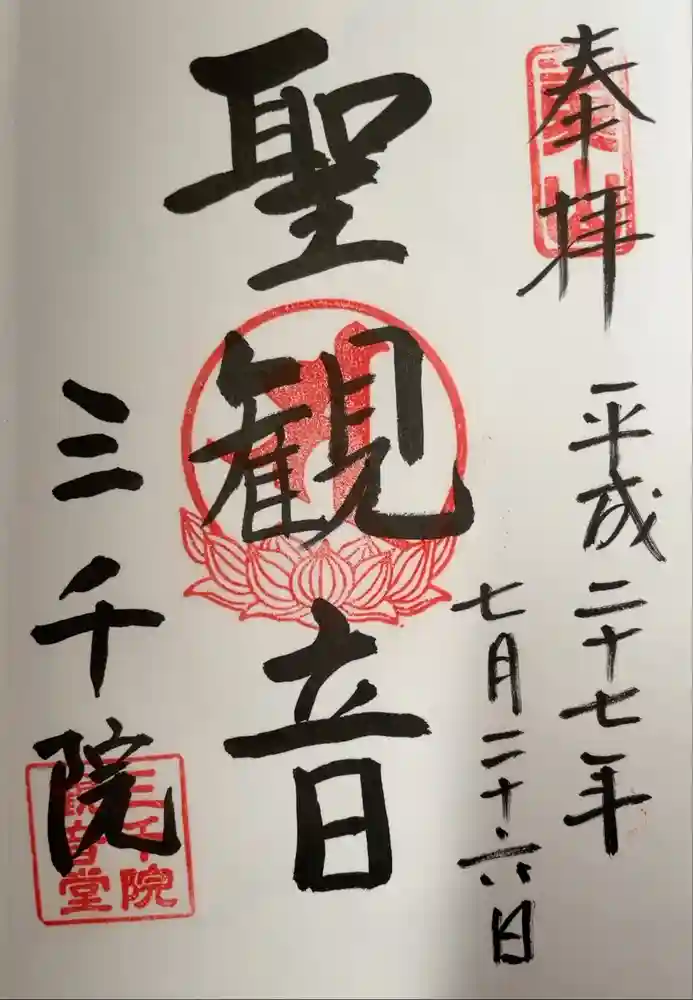 奉拝
平成二十七年
七月二十六日
聖観音
三千院
三千院
観音堂